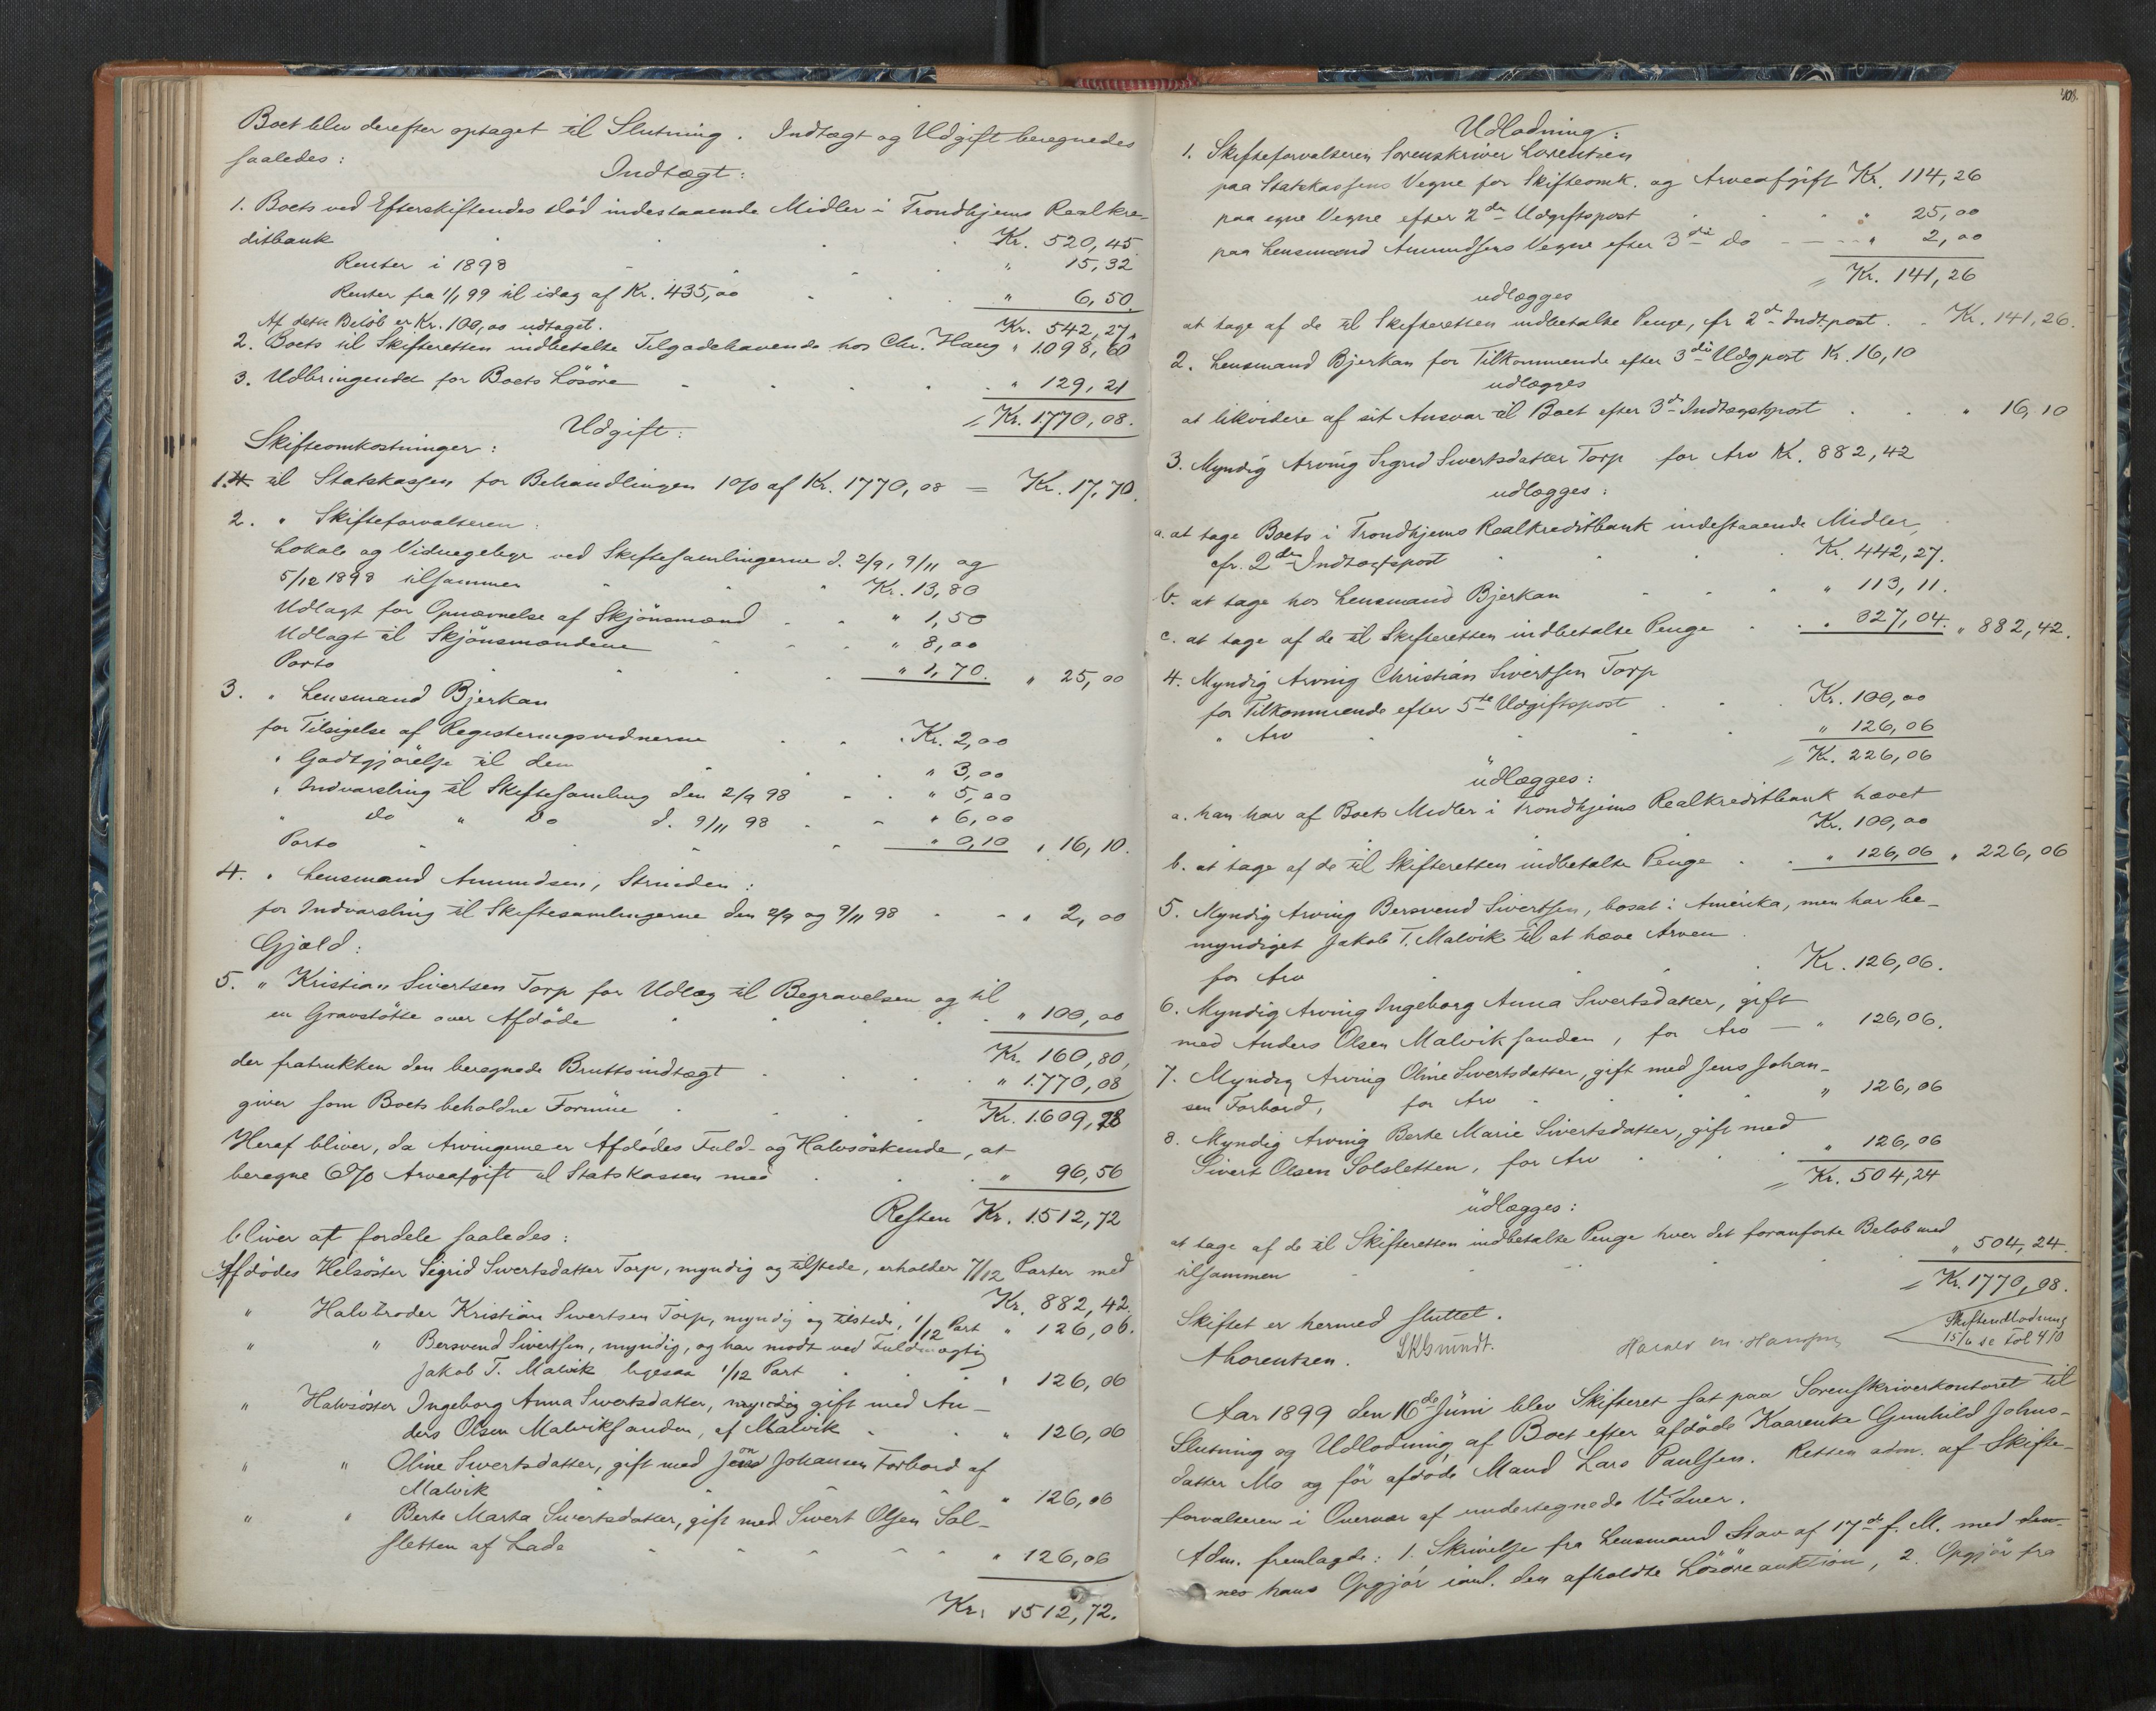 Boet blev derefter optaget til Slutning. Indtægt og Udgift beregnedes
saaledes:
Indtægt:
1. Boets ved Efterskiftendes död indestaaende Midler i Trondhjems Realkre-
ditbank Kr. 520,45
Renter i 1898 " 15,32
Renter fra 1/1 99 til idag af Kr. 435,00 " 6,50
Af dette Belöb er Kr. 100,00 udtaget. Kr. 542,27
2. Boets til Skifteretten indbetalte Tilgodehavende hos Chr. Haug " 1.098,60
3. Udbringendet for Boets Lösöre " 129,21
= Kr. 1.770,08.
Udgift:
Skifteomkostninger:
1. til Statskassen for Behandlingen 1 o/o af Kr. 1770,08 = Kr. 17,70.
2. " Skifteforvalteren:
Lokale og Vidnegebyr ved Skiftesamlingerne d. 2/9, 9/11 og
5/12 1898 tilsammen " Kr. 13,80
Udlagt for Opnævnelse af Skjönsmænd " 1,50
Udlagt til Skjönsmændene " 8,00
Porto " 1,70. " 25,00
3. " Lensmand Bjerkan
for Tilsigelse af Registeringsvidnerne Kr. 2,00
" Godtgjörelse til dem " 3,00
" Indvarsling til Skiftesamling den 2/9 98 " 5,00
" do " Do d. 9/11 98 " 6,00
Porto " 0,10 " 16,10.
4. " Lensmand Amundsen, Strinden:
for Indvarsling til Skiftesamlingerne den 2/9 og 9/11 98 " 2,00
Gjæld:
5. " Kristian Sivertsen Torp for Udlæg til Begravelsen og til
en Gravstötte over Afdöde " 100,00
Kr. 160,80,
der fratrukken den beregnede Bruttoindtægt " 1.770,08
giver som Boets beholdne Formue Kr. 1.609,28
Heraf bliver, da Arvingerne er Afdödes Fuld- og Halvsöskende, at
beregne 6 o/o Arveafgift til Statskassen med " 96,56
Resten Kr. 1.512,72
bliver at fordele saaledes:
Afdödes Helsöster Sigrid Sivertsdatter Torp, myndig og tilstede, erholder 7/12 Parter med
Kr. 882,42.
" Halvbroder Kristian Sivertsen Torp, myndig og tilstede, 1/12 Part " 126,06.
" " Bersvend Sivertsen, myndig, og har mödt ved Fuldmægtig
Jakob T. Malvik ligesaa 1/12 Part " 126,06
" Halvsöster Ingeborg Anna Sivertsdatter, myndig gift med An-
ders Olsen Malviksanden, af Malvik " 126,06
" " Oline Sivertsdatter, gift med Jens Johansen Forbord af
Malvik " 126,06
" " Berte Marta Sivertsdatter, gift med Sivert Olsen Sol-
sletten af Lade " 126,06
Kr. 1512,72.
408.
Udlodning:
1. Skifteforvalteren Sorenskriver Lorentzen
paa Statskassens Vegne for Skifteomk. og Arveafgift Kr. 114,26
paa egne Vegne efter 2den Udgiftspost " 25,00
paa Lensmand Amundsens Vegne efter 3die do " 2,00
= Kr. 141,26
udlægges
at tage af de til Skifteretten indbetalte Penge, cfr 2den Indt.post. Kr. 141,26.
2. Lensmand Bjerkan for Tilkommende efter 3die Udgpost Kr. 16,10
udlægges
at likvidere af sit Ansvar til Boet efter 3die Indtægtspost " 16,10
3. Myndig Arving Sigrid Sivertsdatter Torp for Arv Kr. 882,42
udlægges:
a. at tage Boets i Trondhjems Realkreditbank indestaaende Midler,
cfr. 2den Indtægtspost Kr. 442,27.
b. at tage hos Lensmand Bjerkan " 113,11.
c. at tage af de til Skifteretten indbetalte Penge " 327,04. " 882,42.
4. Myndig Arving Christian Sivertsen Torp
for Tilkommende efter 5te Udgiftspost Kr. 100,00
" Arv " 126,06
= Kr. 226,06
udlægges:
a. han har af Boets Midler i Trondhjems Realkreditbank hævet
Kr. 100,00
b. at tage af de til Skifteretten indbetalte Penge " 126,06 " 226,06
5. Myndig Arving Bersvend Sivertsen, bosat i Amerika, men har be-
myndiget Jakob T. Malvik til at hæve Arven
for Arv Kr. 126,06.
6. Myndig Arving Ingeborg Anna Sivertsdatter, gift
med Anders Olsen Malviksanden, for Arv " 126,06.
7. Myndig Arving Oline Sivertsdatter, gift med Jens Johan-
sen Forbord, for Arv " 126,06
8. Myndig Arving Berte Marie Sivertsdatter, gift med
Sivert Olsen Solsletten, for Arv " 126,06
= Kr. 504,24
udlægges:
at tage af de til Skifteretten indbetalte Penge hver det foranførte Beløb med
tilsammen " 504,24.
= Kr. 1770,08.
Skiftet er hermed sluttet.
Skifteudlodning
15/6 se Fol 410
A Lorentzen.
Aar 1899 den 16de Juni blev Skifteret sat paa Sorenskriverkontoret til
Slutning og Udlodning af Boet efter afdöde Kaarenke Gunhild Johns-
datter Mo og för afdöde Mand Lars Paulsen. Retten adm. af Skifte-
forvalteren i Overvær af undertegnede Vidner.
Adm. fremlagde: 1. Skrivelse fra Lensmand Stav af 17de f. M. med den-
nes hans Opgjör iant. den afholdte Lösöreauktion, 2. Opgjör fra